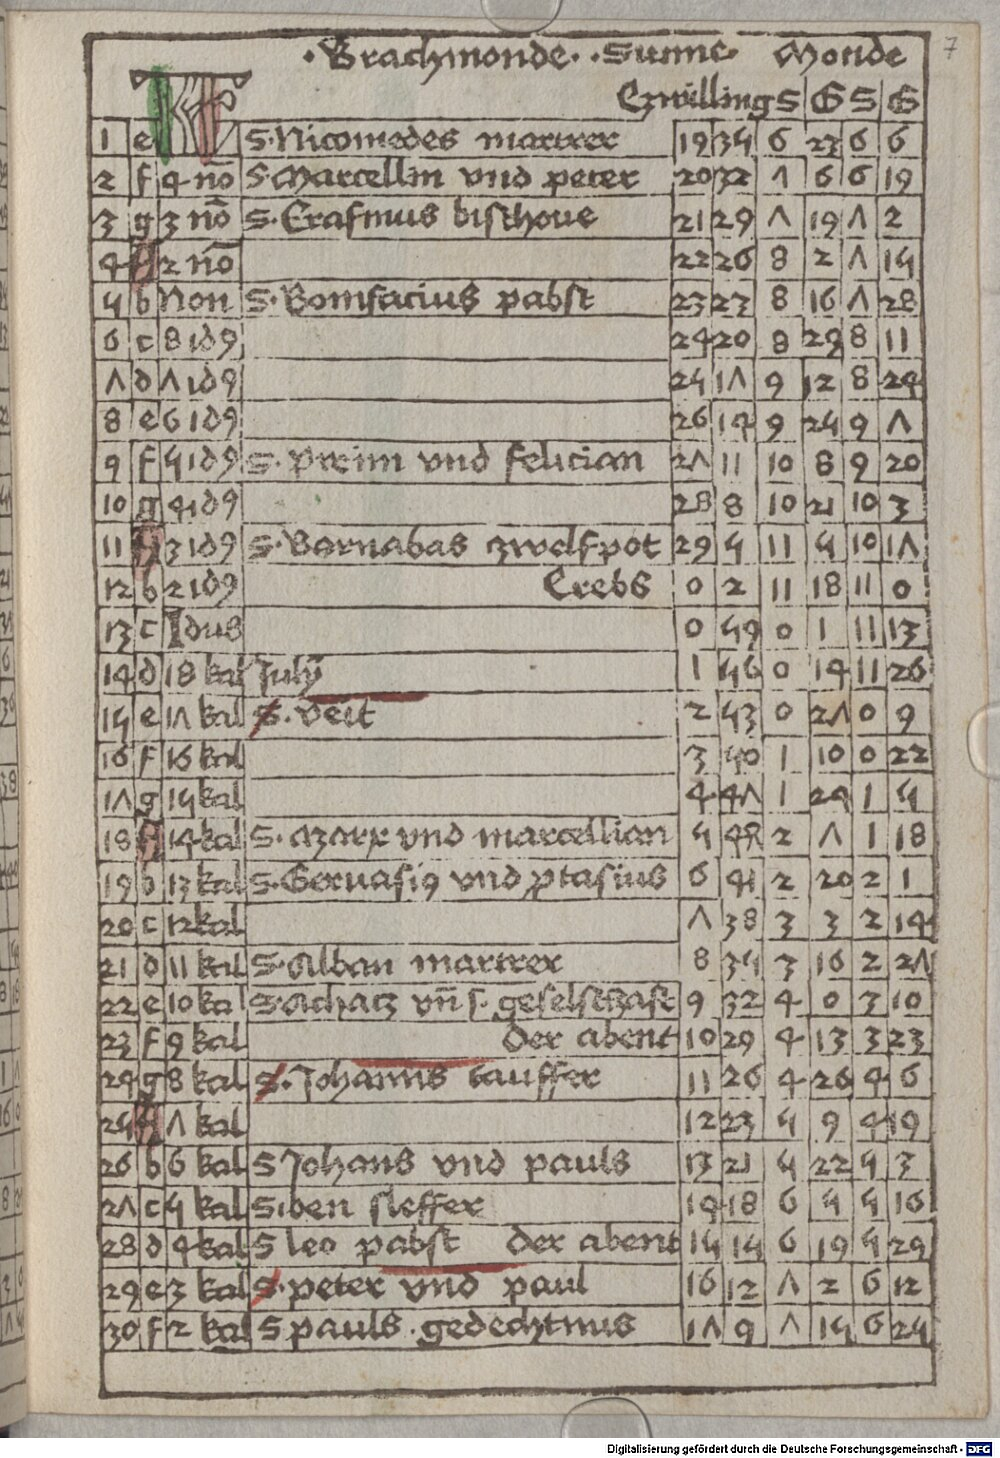 7
· Brachmonde · · Sunne · Monde
KL Czwilling S G S G
1 e S · Nicomedes martrer 19 34 6 23 6 6
2 f 4 nō S · Marcellin vnd peter 20 32 7 6 6 19
3 g 3 nō S · Erasmus bischoue 21 29 7 19 7 2
4 A 2 nō 22 26 8 2 7 15
5 b Non S · Bonifacius pabst 23 23 8 16 7 28
6 c 8 id9 24 20 8 29 8 11
7 d 7 id9 25 17 9 12 8 24
8 e 6 id9 26 14 9 25 9 7
9 f 5 id9 S · Preim vnd felician 27 11 10 8 9 20
10 g 4 id9 28 8 10 21 10 3
11 A 3 id9 S · Barnabas zwelfpot 29 5 11 5 10 17
12 b 2 id9 Crebs 0 2 11 18 11 0
13 c Idus 0 59 0 1 11 13
14 d 18 kal July 1 56 0 14 11 26
15 e 17 kal S · veit 2 53 0 27 0 9
16 f 16 kal 3 50 1 10 0 22
17 g 15 kal 4 47 1 24 1 5
18 A 14 kal S · Marx vnd marcellian 5 44 2 7 1 18
19 b 13 kal S · Geruasi9 vnd ptasius 6 41 2 20 2 1
20 c 12 kal 7 38 3 3 2 14
21 d 11 kal S · Alban martrer 8 35 3 16 2 27
22 e 10 kal S · Achatz vn̄ s · geselschaft 9 32 4 0 3 10
23 f 9 kal der abent 10 29 4 13 3 23
24 g 8 kal S · Johanns tauffer 11 26 4 26 4 6
25 A 7 kal 12 23 5 9 4 19
26 b 6 kal S Johans vnd pauls 13 21 5 22 5 3
27 c 5 kal Siben sleffer 14 18 6 5 5 16
28 d 4 kal S leo pabst der abent 15 15 6 19 5 29
29 e 3 kal S · peter vnd paul 16 12 7 2 6 12
30 f 2 kal S pauls · gedechtnus 17 9 7 15 6 25
Digitalisierung gefördert durch die Deutsche Forschungsgemeinschaft · DFG